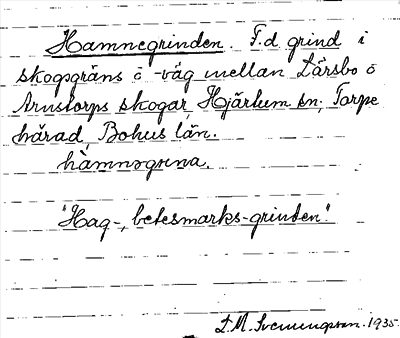 Hamnegrinden. F.d. grind i
skogsgräns o -väg mellan Lärsbo o
Arnstorps skogar, Hjärtum sn, Torpe
härad, Bohus län.
hàmnəgrına.
"Hag-, betesmarks-grinden".
L.M. Svenungsson. 1935.